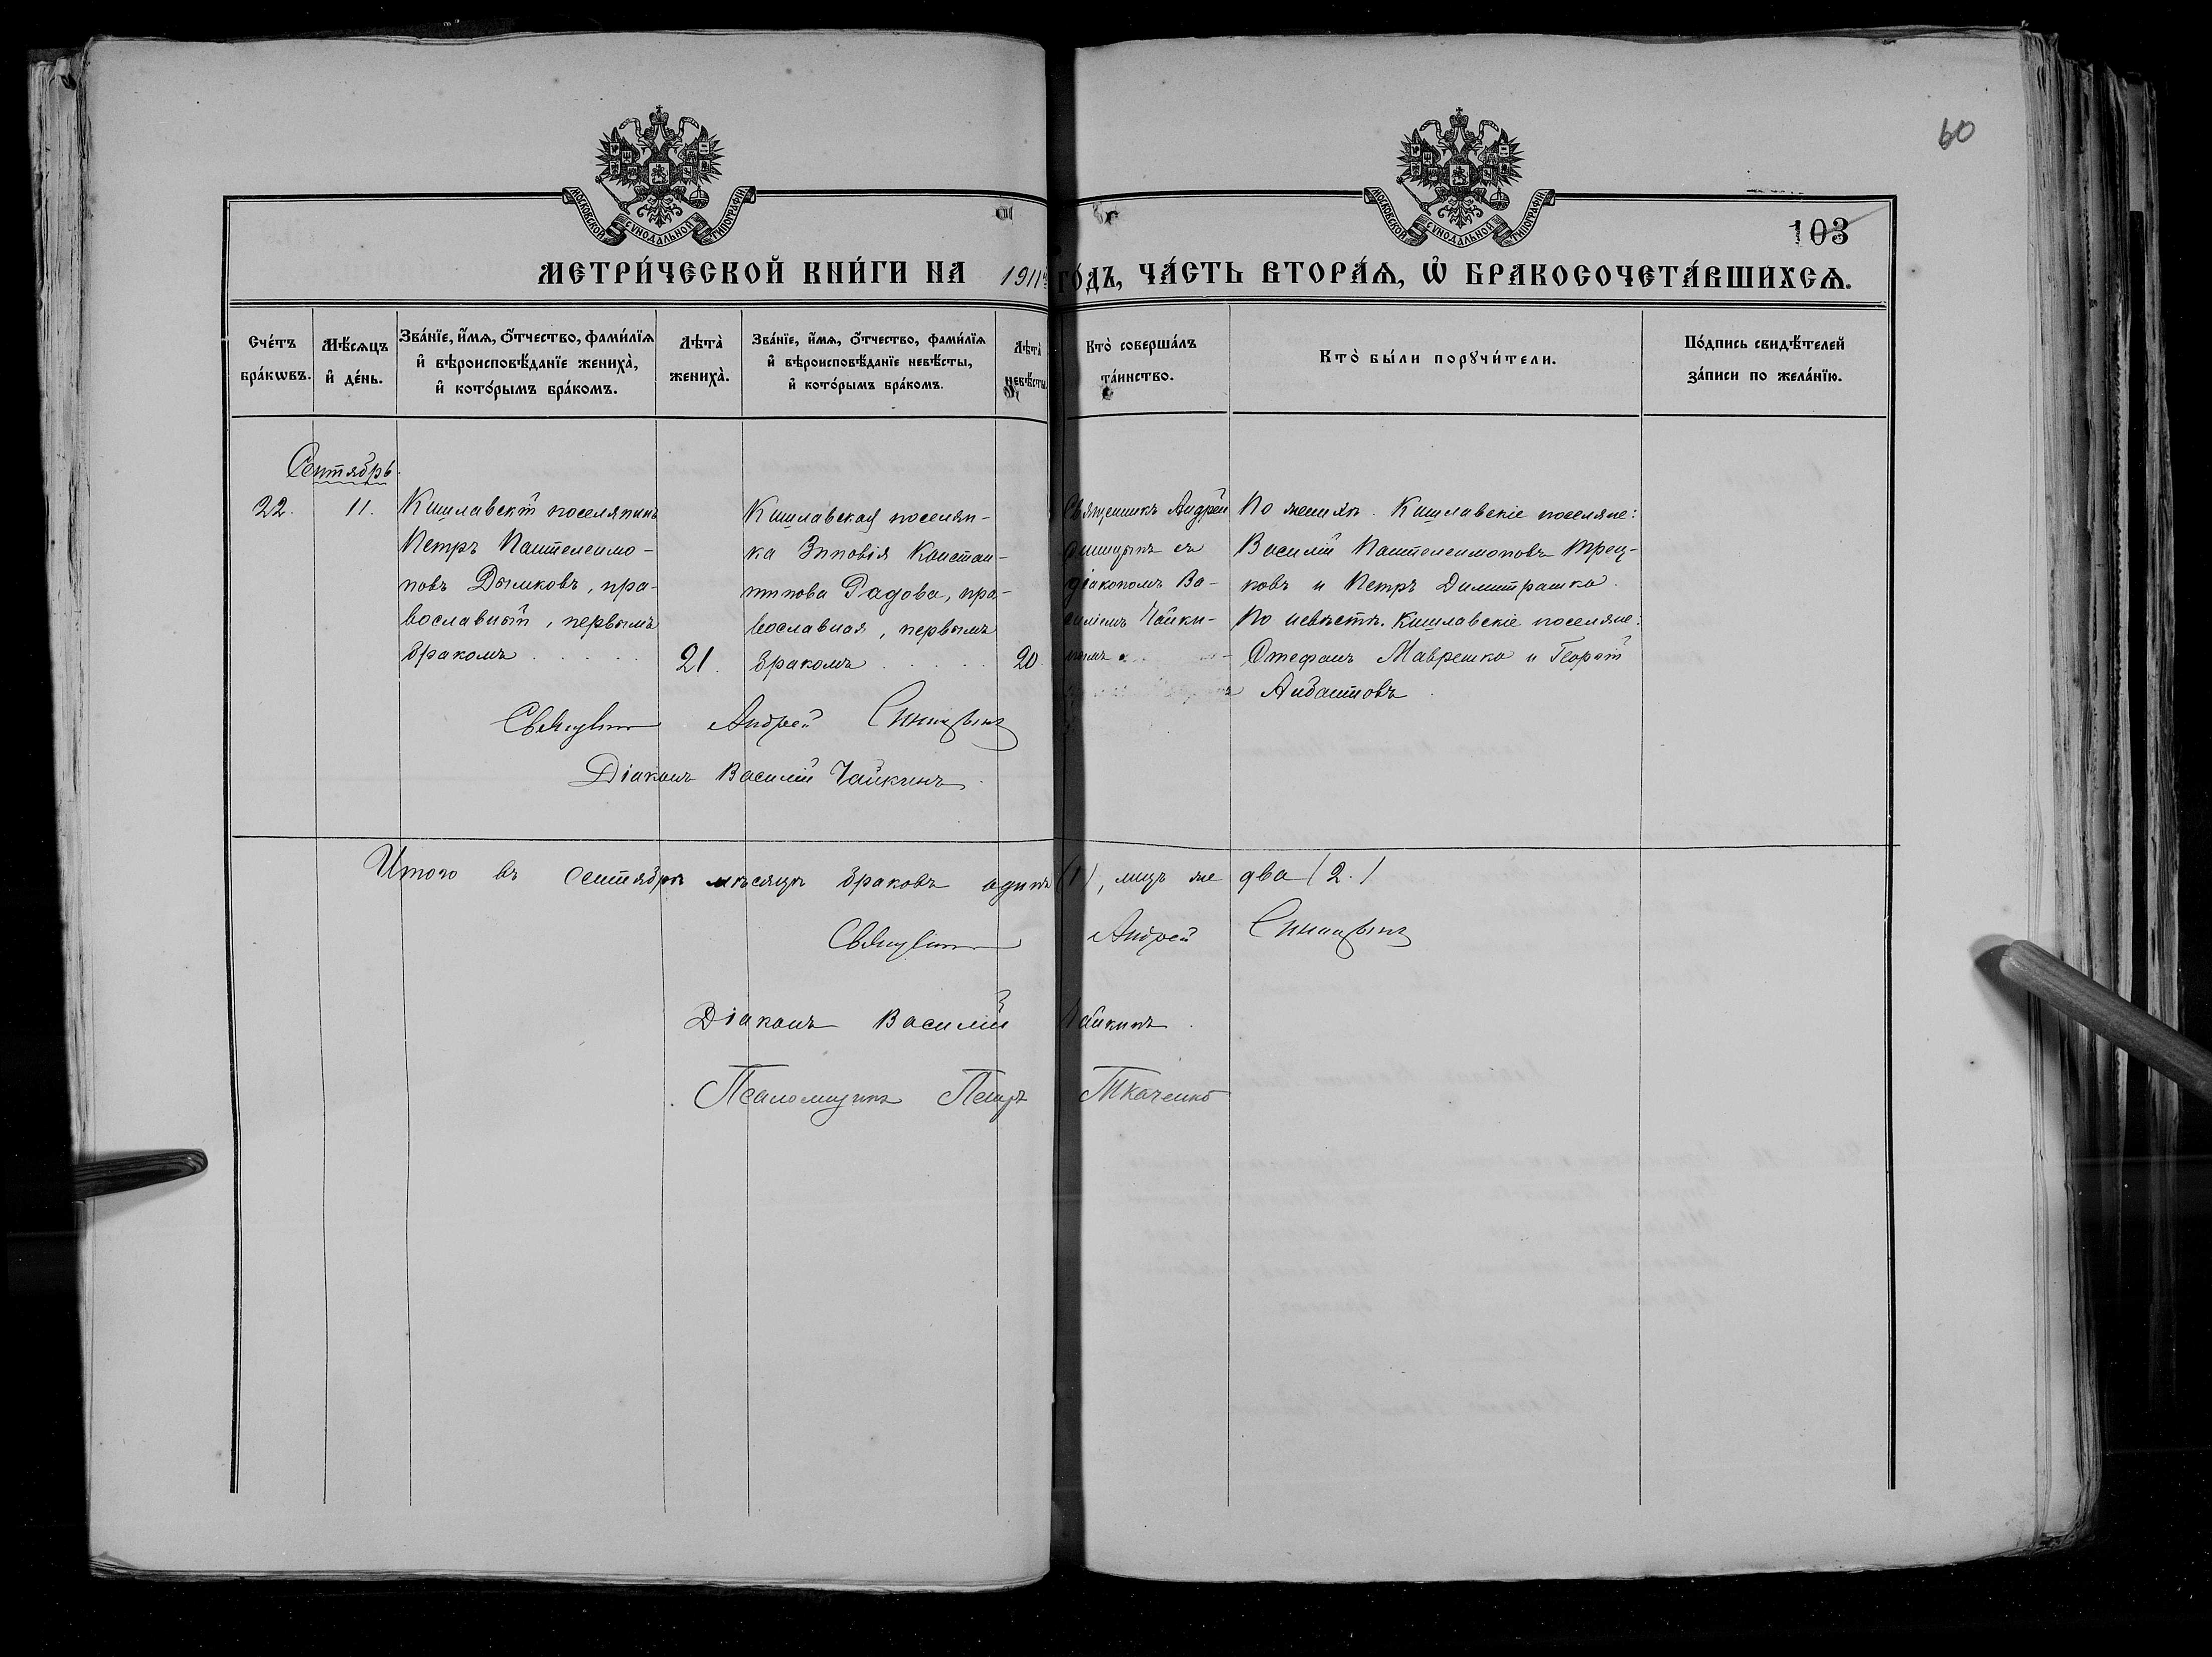 60
103
МОСКОВСКОЙ СѴНОДАЛЬНОЙ ТИПОГРАФІИ
МОСКОВСКОЙ СѴНОДАЛЬНОЙ ТИПОГРАФІИ
МЕТРИ́ЧЕСКОЙ КНИ́ГИ НА 1911й ГО́ДЪ, ЧА́СТЬ ВТОРА́Ѧ, Ѡ БРАКОСОЧЕТА́ВШИХСѦ.
Сче́тъ бра́кѡвъ.
Мѣ́сѧцъ и҆ де́нь.
Зва́нїе, и҆́мѧ, ѻ҆́тчество, фами́лїѧ
и҆ вѣроисповѣ́данїе жениха̀,
и҆ кото́рымъ бра́комъ.
Лѣта̀ жениха̀.
Зва́нїе, и҆́мѧ, ѻ҆́тчество, фами́лїѧ
и҆ вѣроисповѣ́данїе невѣ́сты,
и҆ кото́рымъ бра́комъ.
Лѣта̀ невѣ́сты.
Кто̀ соверша́лъ
та́инство.
Кто̀ бы́ли порꙋчи́тели.
По́дпись свидѣ́телей
за́писи по жела́нїю.
Сентябрь.
22.
11.
Кишлавскій поселянинъ
Петръ Пантелеимо-
новъ Дымковъ, пра-
вославный, первымъ
бракомъ
21.
Кишлавская поселян-
ка Зиновія Констан-
тинова Радова, пра-
вославная, первымъ
бракомъ
20.
Священникъ Андрей
Синицынъ съ
діакономъ Ва-
силіемъ Чайки-
нымъ.
По женихѣ. Кишлавскіе поселяне:
Василій Пантелеимоновъ
и Петръ Димитрашко.
По невѣстѣ. Кишлавскіе поселяне:
Стефанъ Маврешко и Георгій
Священникъ Андрей Синицынъ
Діаконъ Василій Чайкинъ.
Итого въ Сентябрѣ мѣсяцѣ браковъ одинъ (1), лицъ же два (2.)
Священникъ Андрей Синицынъ
Діаконъ Василій Чайкинъ.
Псаломщикъ Петръ Ткаченко